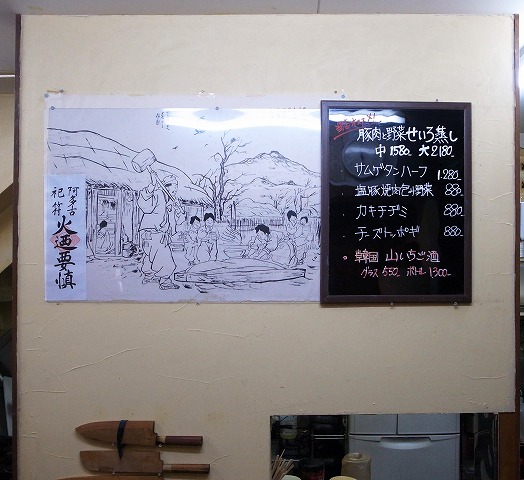 阿多古
祀符
火迺要慎
豚肉と野菜せいろ蒸し
中1580 大2180
・サムゲタンハーフ 1280
・塩豚焼肉包り野菜 880
・カキチヂミ 880
・チーズトッポギ 880
・韓国 山いちご酒
グラス 550 ボトル 1300